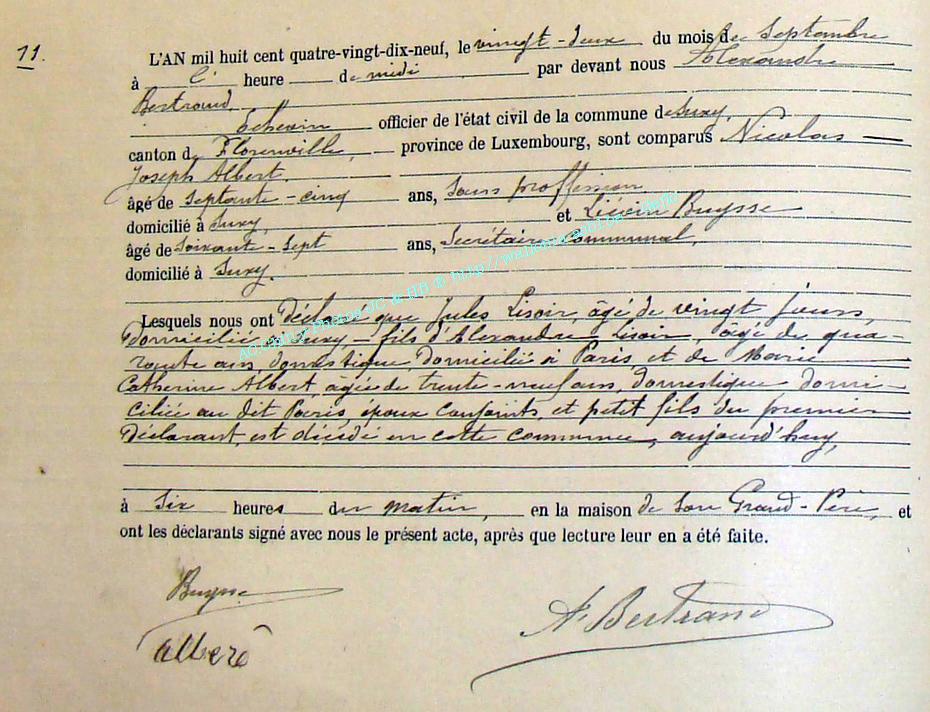 11.
L'AN mil huit cent quatre-vingt-dix-neuf, le vingt-deux du mois de Septembre
à l' heure de midi par devant nous Alexandre
Bertrand
Echevin officier de l'état civil de la commune de Suxy,
canton de Florenville, province de Luxembourg, sont comparus Nicolas
Joseph Albert.
âgé de Septante-cinq ans, Sans proffession
domicilié à Suxy, et Liévin Buysse
âgé de Soixante-Sept ans, Secrétaire communal,
domicilié à Suxy.
Lesquels nous ont déclaré que Jules Lisoir, âgé de vingt jours,
domicilié à Suxy, fils d'Alexandre Lisoir, âgé de qua-
rante ans, domestique, domicilié à Paris, et de Marie
Catherine Albert, âgée de trente-neuf ans, domestique domi-
ciliée au dit Paris, époux conjoints, et petit fils du premier
déclarant, est décédé en cette commune, aujourd'huy,
à Six heures du matin, en la maison de Son Grand-Père, et
ont les déclarants signé avec nous le présent acte, après que lecture leur en a été faite.
Buysse
A. Bertrand
albert